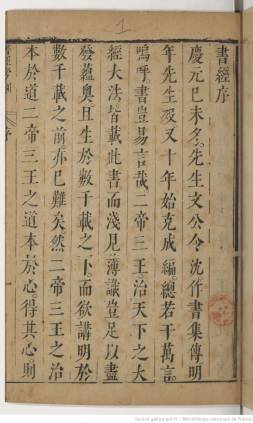 書經序
慶元己未冬先生文公令沈作書集傳明
年先生歿又十年始克成編總若干萬言
嗚呼書豈易言哉二帝三王治天下之大
經大法皆載此書而淺見薄識豈足以盡
發蘊奧且生於數千載之下而欲講明於
數千載之前亦已難矣然二帝三王之治
本於道二帝三王之道本於心得其心則
序
1
Source gallica.bnf.fr / Bibliothèque nationale de France